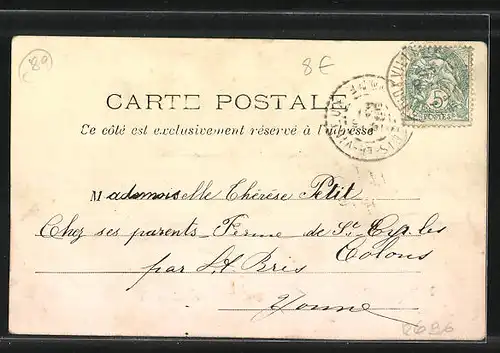 89
8€
CARTE POSTALE
Ce côté est exclusivement réservé à l'adresse
5c
POSTES
Mademoiselle Thérèse Petit
Chez ses parents Ferme de St Cyr les
Colons
par St Bris
Yonne
2696